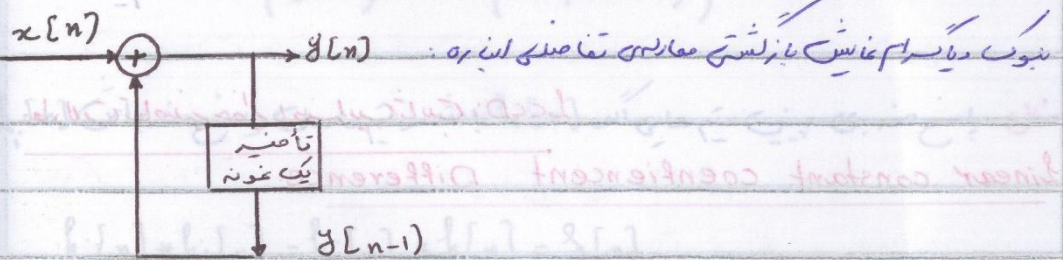 بلوک دیاگرام نمایش بازگشتی معادله‌ی تفاضلی انباره:
x[n]
+
y[n]
تأخیر
یک نمونه
y[n-1]